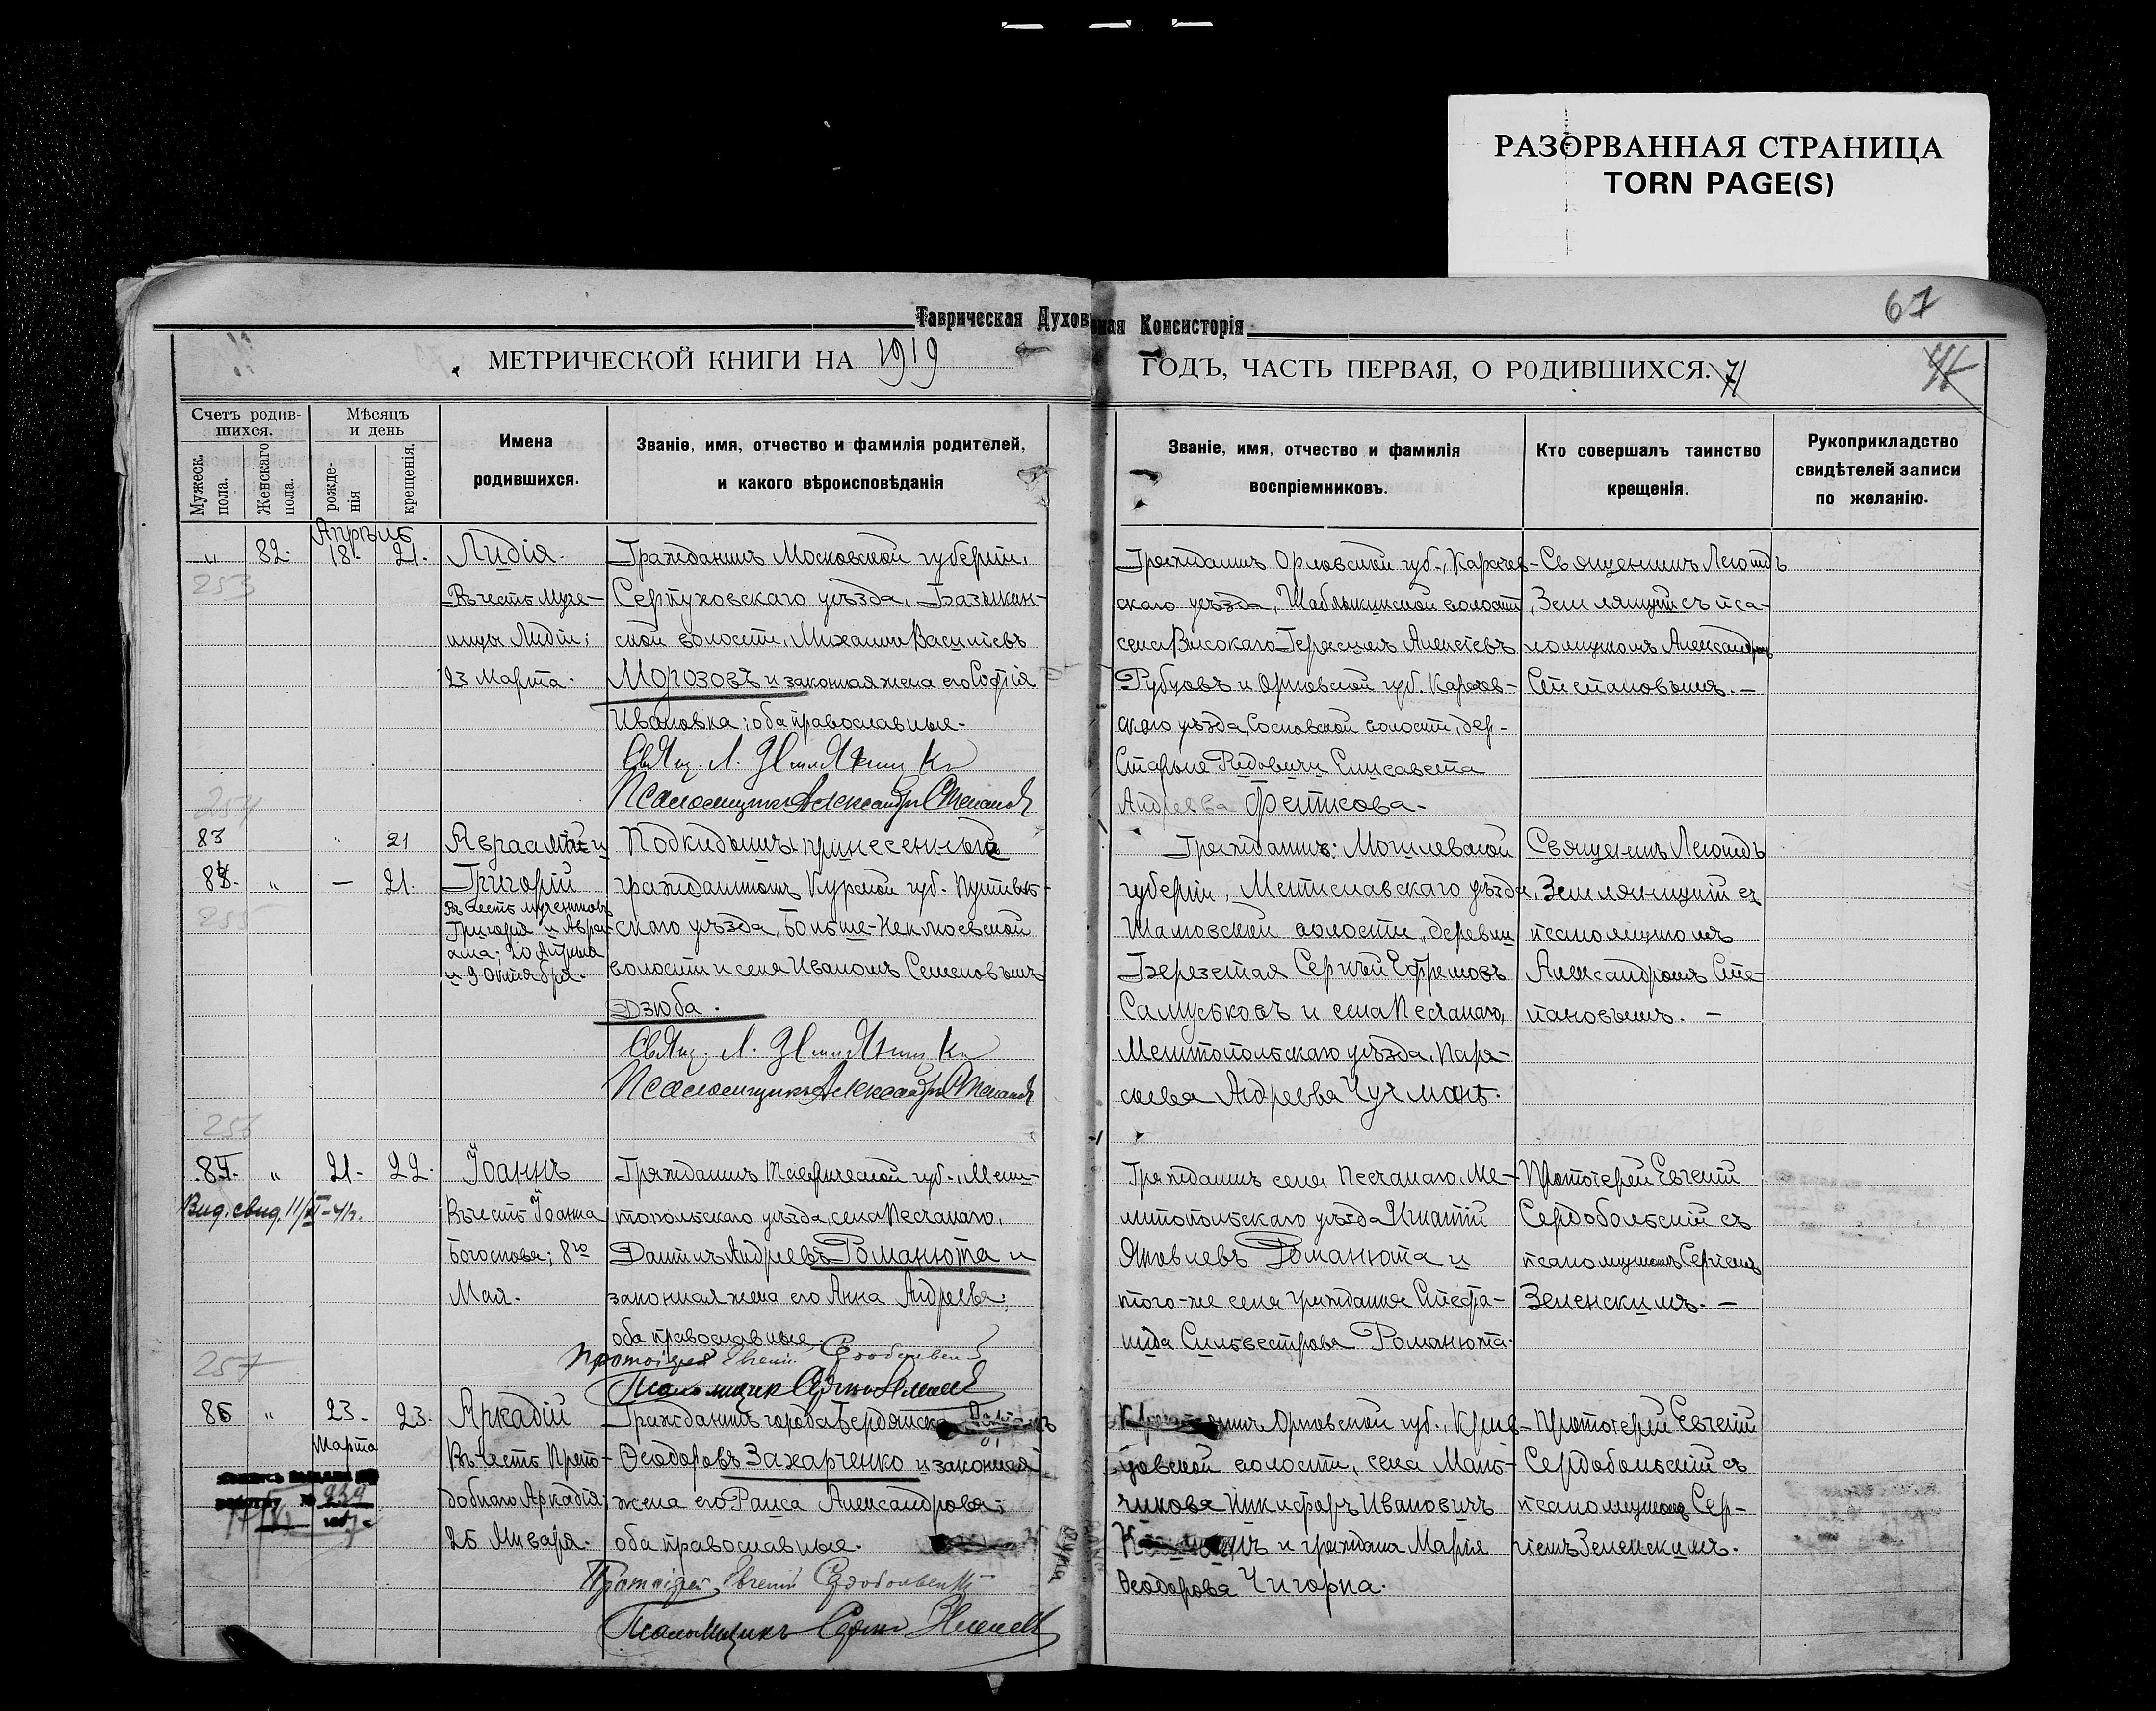 РАЗОРВАННАЯ СТРАНИЦА
TORN PAGE(S)
67
Таврическая Духовная Консисторія
МЕТРИЧЕСКОЙ КНИГИ НА 1919 ГОДЪ, ЧАСТЬ ПЕРВАЯ, О РОДИВШИХСЯ.
Счетъ родив-
шихся.
Мужеск.
пола.
Женскаго
пола.
Мѣсяцъ
и день
рожде-
нія
крещенія.
Имена
родившихся.
Званіе, имя, отчество и фамилія родителей,
и какого вѣроисповѣданія
Званіе, имя, отчество и фамилія
воспріемниковъ.
Кто совершалъ таинство
крещенія.
Рукоприкладство
свидѣтелей записи
по желанію.
Апрѣль
„ 82. 18. 21.
253
Лидія.
Въ честь Муче-
ницы Лидіи;
23 Марта.
Гражданинъ Московской губерніи,
Серпуховскаго уѣзда,
ской волости, Михаилъ Васильевъ
Морозовъ и законная жена его Софія
Ивановна; оба православные.
Псаломщикъ Александръ Степановъ
Гражданинъ Орловской губ., Карачев-
скаго уѣзда, Шаблыкинской волости,
села Высокаго Герасимъ Алексѣевъ
Рубцовъ и Орловской губ. Карачев-
скаго уѣзда, Сосновской волости, дер.
Старые Рядовичи Елисавета
Андреева Феткова.
Священникъ Леонидъ
Земляницкій съ пса-
ломщикомъ Александромъ
Степановымъ. —
254
83 21
84. „ — 21.
255
Авраамій и
Григорій
Въ честь мучениковъ
Григорія и Авра-
ама; 20 Апрѣля
и 9 Октября.
Подкидышъ принесенный
гражданиномъ Курской губ. Путивль-
скаго уѣзда, Больше-Неклюевской
волости и села Иваномъ Семеновымъ
Дзюба.
Псаломщикъ Александръ Степановъ
Гражданинъ: Могилевской
губерніи, Мстиславскаго уѣзда,
Шамовской волости, деревни
Березетая Сергѣй Ефремовъ
Самуськовъ и села Песчанаго,
Мелитопольскаго уѣзда, Пара-
скева Андреева Чучмань.
Священникъ Леонидъ
Земляницкій съ
псаломщикомъ
Александромъ Сте-
пановымъ. —
256
85. „ 21. 22.
Вид. свид.
Іоаннъ
Въ честь Іоанна
Богослова; 8го
Мая.
Гражданинъ Таврической губ., Мели-
топольскаго уѣзда, села Песчанаго,
Даніилъ Андреевъ Романюта и
законная жена его Анна Андреева;
оба православные.
Протоіерей Евгеній Сердобольскій
Псаломщикъ Сергій Зеленскій
Гражданинъ села Песчанаго, Ме-
литопольскаго уѣзда Игнатій
Яковлевъ Романюта и
того-же села гражданка Стефа-
нида Сильвестрова Романюта.
Протоіерей Евгеній
Сердобольскій съ
псаломщикомъ Сергіемъ
Зеленскимъ. —
257
86 „ 23. 23.
Марта
Аркадій
Въ честь Препо-
добнаго Аркадія;
26 Января.
Гражданинъ города Бердянска
Ѳеодоровъ Захарченко и законная
жена его Раиса Александрова;
оба православные.
Протоіерей Евгеній Сердобольскій
Псаломщикъ Сергій Зеленскій
Орловской губ.,
волости, села
Никифоръ Ивановичъ
и гражданка Марія
Ѳеодорова Чигорна.
Протоіерей Евгеній
Сердобольскій съ
псаломщикомъ Сер-
гіемъ Зеленскимъ.